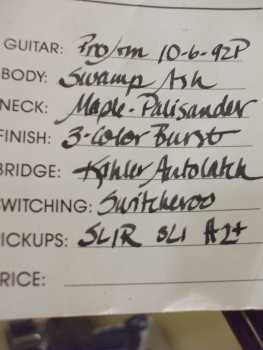 GUITAR: Pro/sm 10-6-92P
BODY: Swamp Ash
NECK: Maple-Palisander
FINISH: 3-Color Burst
BRIDGE: Kahler Autolatch
SWITCHING: Switcheroo
PICKUPS: SL1R SL1 A2+
RICE: